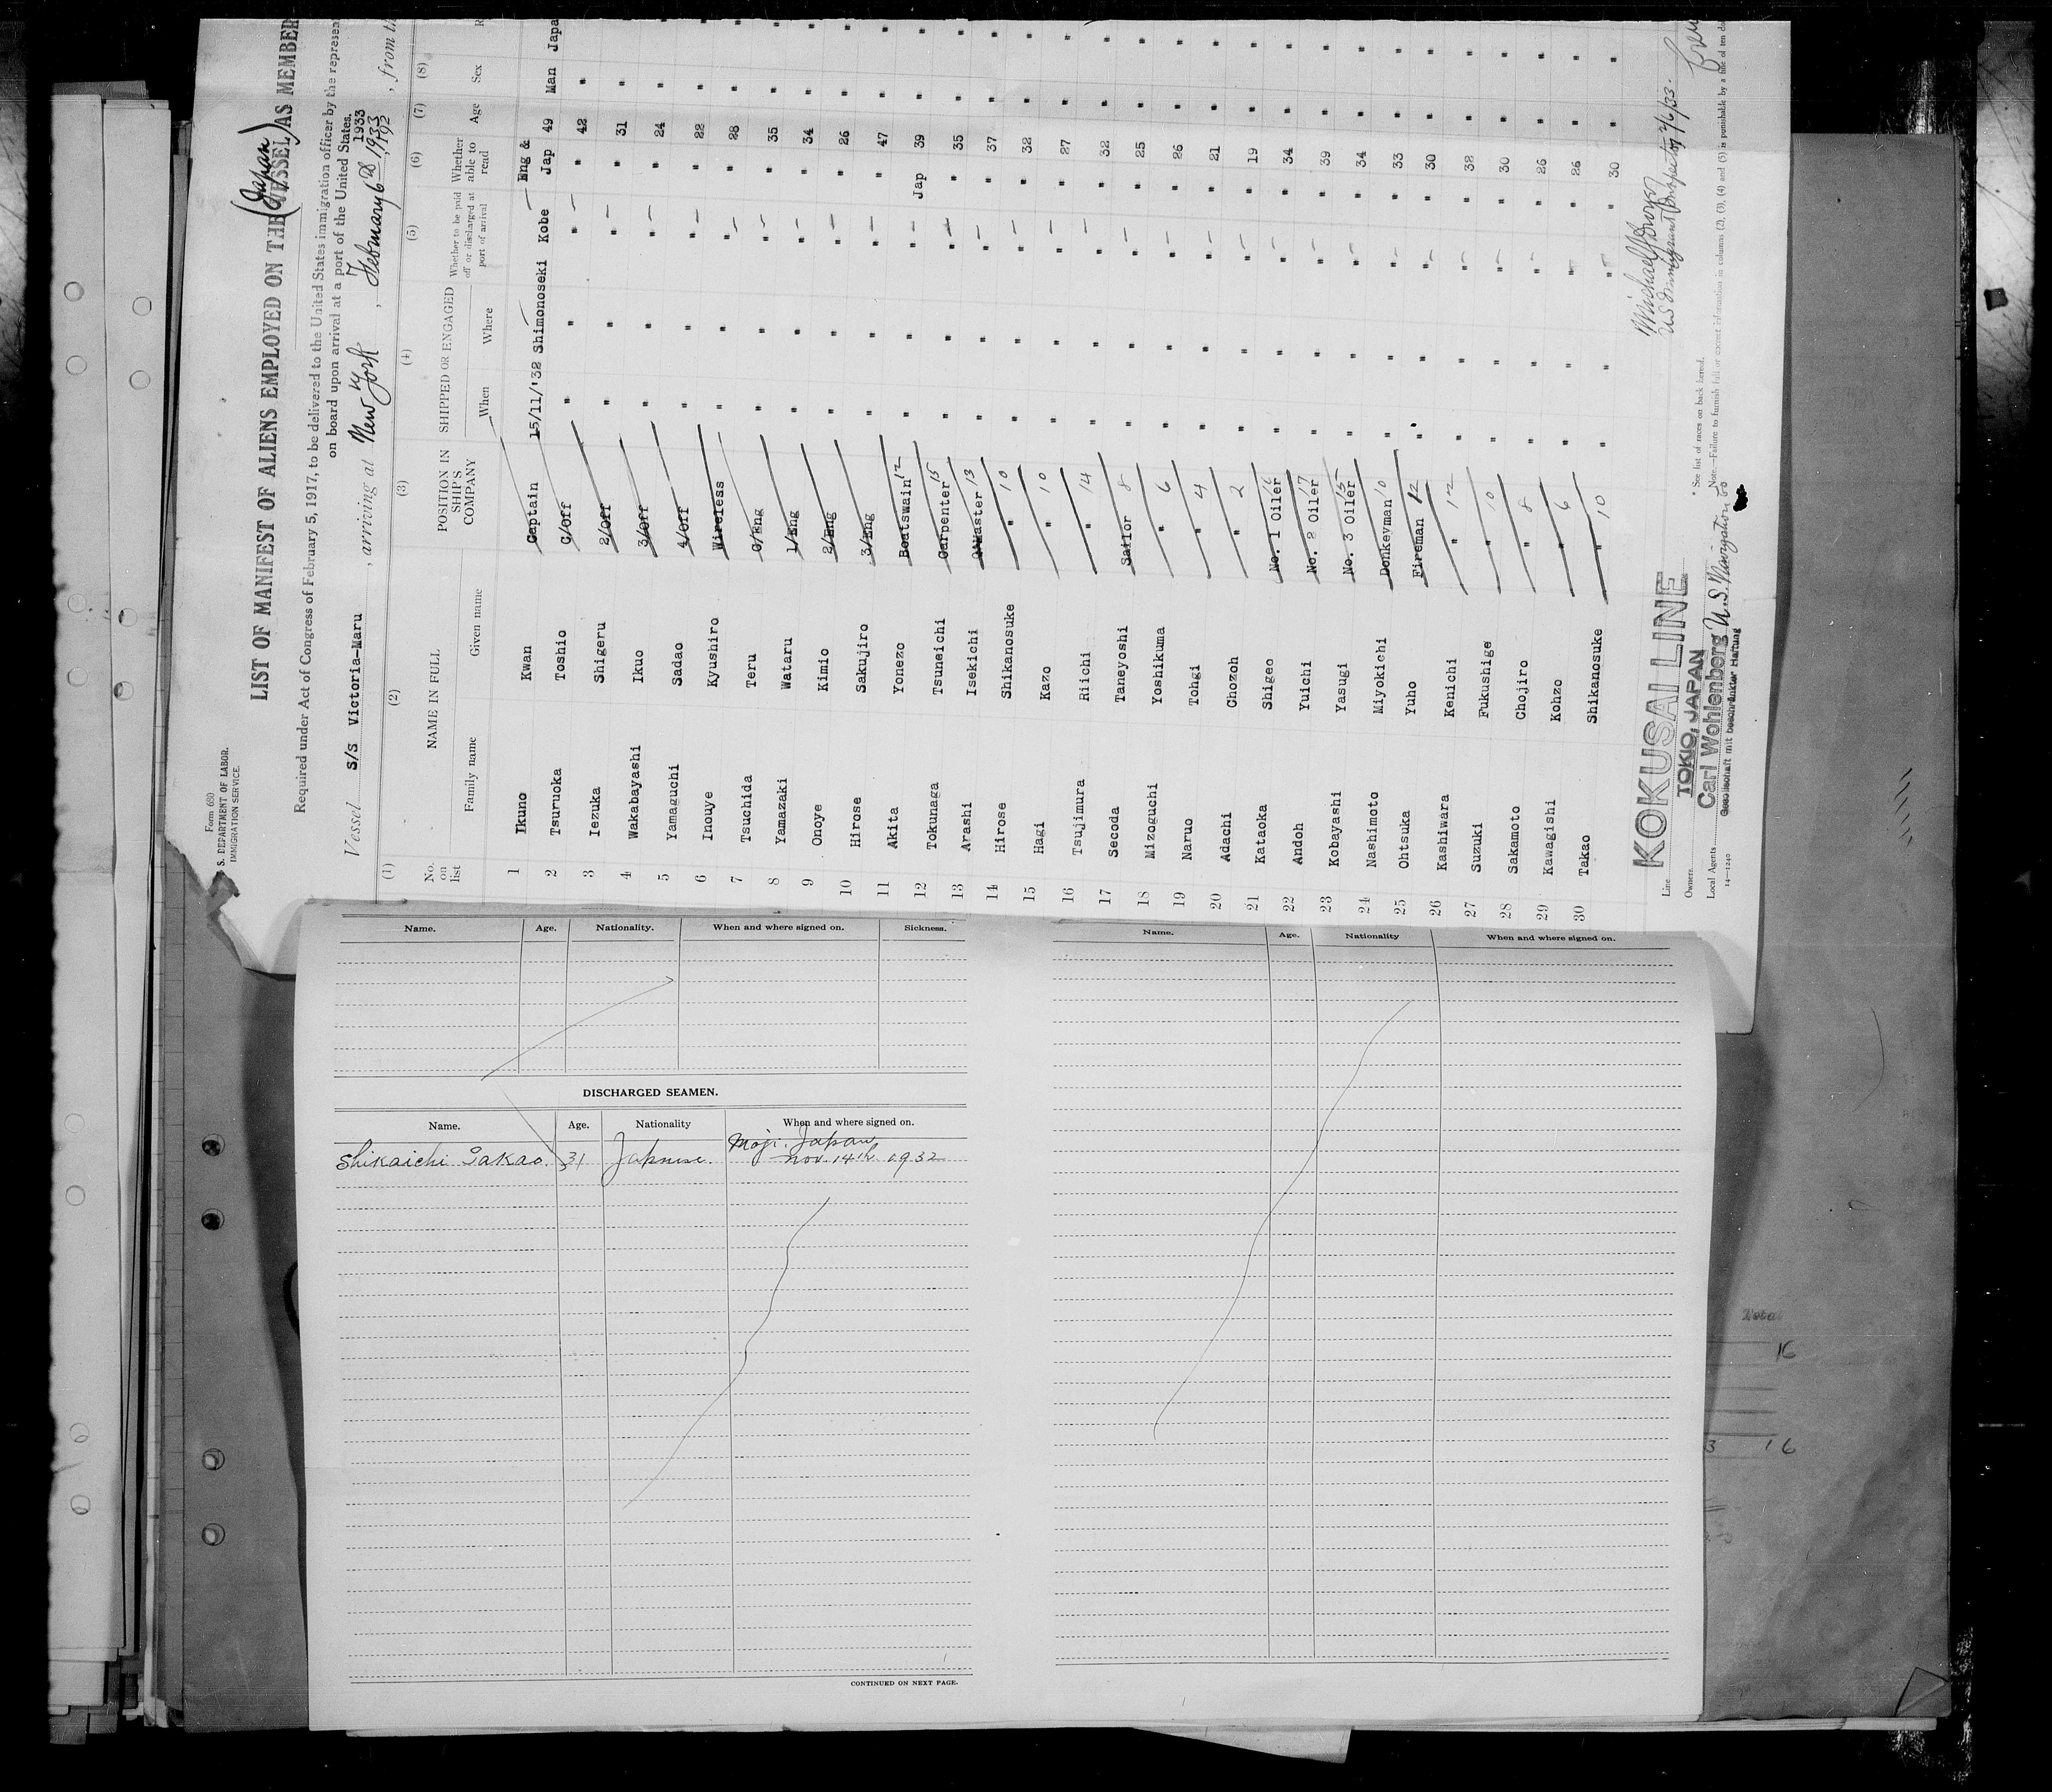 Form 680
S. DEPARTMENT OF LABOR
IMMIGRATION SERVICE
(Japan)
LIST OF MANIFEST OF ALIENS EMPLOYED ON THE VESSEL AS MEMBER
Required under Act of Congress of February 5, 1917, to be delivered to the United States immigration officer by the represen
on board upon arrival at a port of the United States.
1933
Vessel S/S Victoria-Maru , arriving at New York , February 6th 1933 , 192 , from th
(1) (2) (3) (4) (5) (6) (7) (8)
No. on list NAME IN FULL POSITION IN SHIP'S COMPANY SHIPPED OR ENGAGED Whether to be paid off or discharged at port of arrival Whether able to read Age Sex R
Family name Given name When Where
Eng &
1 Ikuno Kwan Captain 15/11/'32 Shimonoseki Kobe Jap 49 Man Japa
2 Tsuruoka Toshio C/Off " " " " 42 "
3 Iezuka Shigeru 2/Off " " " " 31 " "
4 Wakabayashi Ikuo 3/Off " " " " 24 " "
5 Yamaguchi Sadao 4/Off " " " " 22 " "
6 Inouye Kyushiro Wireless " " " " 28 " "
7 Tsuchida Teru C/Eng " " " " 35 " "
8 Yamazaki Wataru 1/Eng " " " " 34 " "
9 Onoye Kimio 2/Eng " " " " 26 " "
10 Hirose Sakujiro 3/Eng " " " " 47 " "
11 Akita Yonezo Boatswain 12 " " " Jap 39 " "
12 Tokunaga Tsuneichi Carpenter 15 " " " " 35 " "
13 Arashi Isekichi Q'Master 13 " " " " 37 " "
14 Hirose Shikanosuke " 10 " " " " 32 " "
15 Hagi Kazo " 10 " " " " 27 " "
16 Tsujimura Riichi " 14 " " " " 32 " "
17 Secoda Taneyoshi Sailor 8 " " " " 25 " "
18 Mizoguchi Yoshikuma " 6 " " " " 26 " "
19 Naruo Tohgi " 4 " " " " 21 " "
20 Adachi Chozoh " 2 " " " " 19 " "
21 Kataoka Shigeo No. 1 Oiler 16 " " " " 34 " "
22 Andoh Yuichi No. 2 Oiler 17 " " " " 39 " "
23 Kobayashi Yasugi No. 3 Oiler 15 " " " " 34 " "
24 Nashimoto Miyokichi Donkeyman 10 " " " " 33 " "
25 Ohtsuka Yuho Fireman 12 " " " " 30 " "
26 Kashiwara Kenichi " 12 " " " " 32 " "
27 Suzuki Fukushige " 10 " " " " 30 " "
28 Sakamoto Chojiro " 8 " " " " 26 " "
29 Kawagishi Kohzo " 6 " " " " 26 " "
30 Takao Shikanosuke " 10 " " " " 30 " "
Line KOKUSAI LINE
TOKIO, JAPAN
Owners
Local Agents Carl Wohlenberg U.S. Navigation Co
Gesellschaft mit beschränkter Haftung
14—1240
US Immigrant Inspector 2/6/33.
* See list of races on back hereof.
Note.—Failure to furnish full or correct information in columns (2), (3), (4) and (5) is punishable by a fine of ten do
Name. Age. Nationality. When and where signed on. Sickness.
DISCHARGED SEAMEN.
Name. Age. Nationality When and where signed on.
Moji. Japan
Shikaichi Takao. 31 Japanese. Nov. 14th 1932
CONTINUED ON NEXT PAGE.
Name. Age. Nationality When and where signed on.
Total
16
3 16